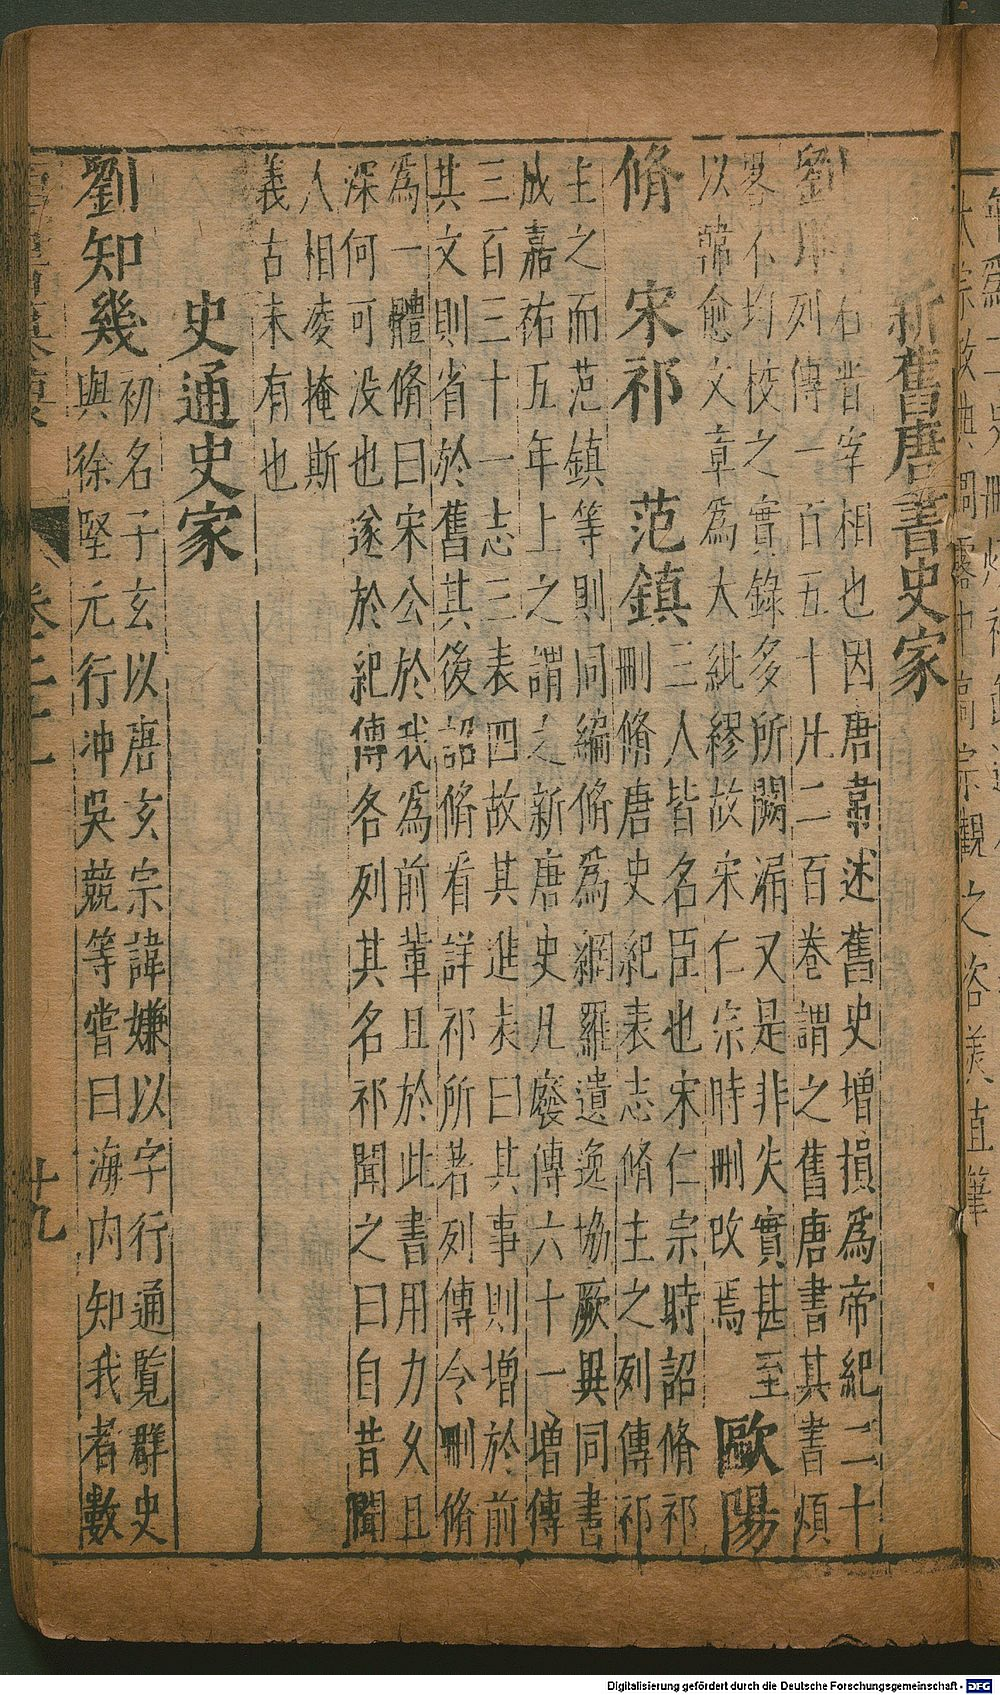 太宗故典調露中高宗觀之咨羨直筆
新舊唐書史家
劉昫 石晉宰相也因唐韋述舊史增損爲帝紀二十
列傳一百五十凡二百卷謂之舊唐書其書煩
畧不均校之實錄多所闕漏又是非失實甚至
以韓愈文章爲大紕繆故宋仁宗時刪改焉 歐陽
脩 宋祁 范鎮 三人皆名臣也宋仁宗時詔脩祁
刪脩唐史紀表志脩主之列傳祁
主之而范鎮等則同編脩爲網羅遺逸協厥異同書
成嘉祐五年上之謂之新唐史凡廢傳六十一增傳
三百三十一志三表四故其進表曰其事則增於前
其文則省於舊其後詔脩看詳祁所著列傳令刪脩
爲一體脩曰宋公於我爲前輩且於此書用力久且
深何可没也遂於紀傳各列其名祁聞之曰自昔聞
人相凌掩斯
義古未有也
史通史家
劉知幾 初名子玄以唐玄宗諱嫌以字行通覽群史
與徐堅元行冲吳競等嘗曰海内知我者數
十九
Digitalisierung gefördert durch die Deutsche Forschungsgemeinschaft - DFG